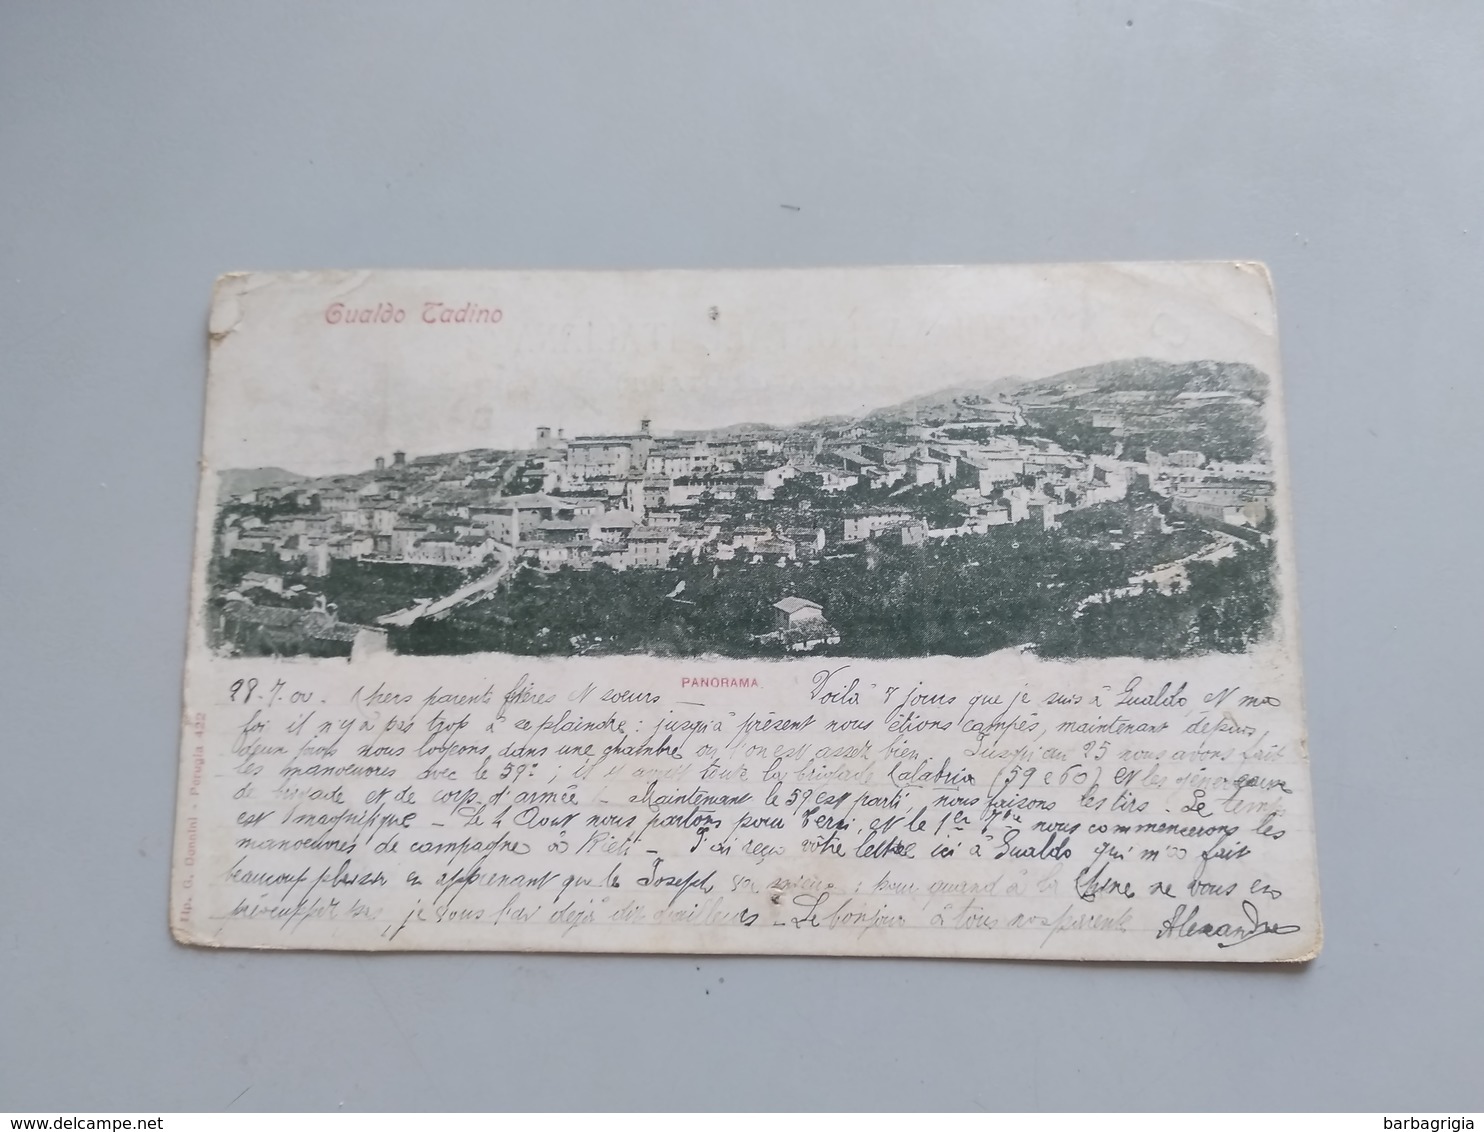 Gualdo Tadino
PANORAMA
Tip. G. Donnini - Perugia 422
28.7.00. Chers parents frères et soeurs — Voilà 7 jours que je suis à Gualdo, et ma
foi il n'y a pas trop à se plaindre : jusqu'à présent nous étions campés, maintenant depuis
deux jours nous logeons dans une chambre où l'on est assez bien. Jusqu'au 25 nous avons fait
les manoeuvres avec le 59e ; il y avait toute la brigade Calabria (59 e 60) et les
de brigade et de corp d'armée. — Maintenant le 59 est parti, nous faisons les tirs. Le temps
est magnifique — Le 4 Aout nous partons pour Terni, et le 1er 7bre nous commencerons les
manoeuvres de campagne à Rieti — J'ai reçu vôtre lettre ici à Gualdo qui m'a fait
beaucoup plaisir en apprenant que le Joseph va mieux ; pour quand à la Chine ne vous en
préoccuppez pas, je vous l'ai dejà dit d'ailleurs — Le bonjour à tous nos parents Alexandre
www.delcampe.net
barbagrigia